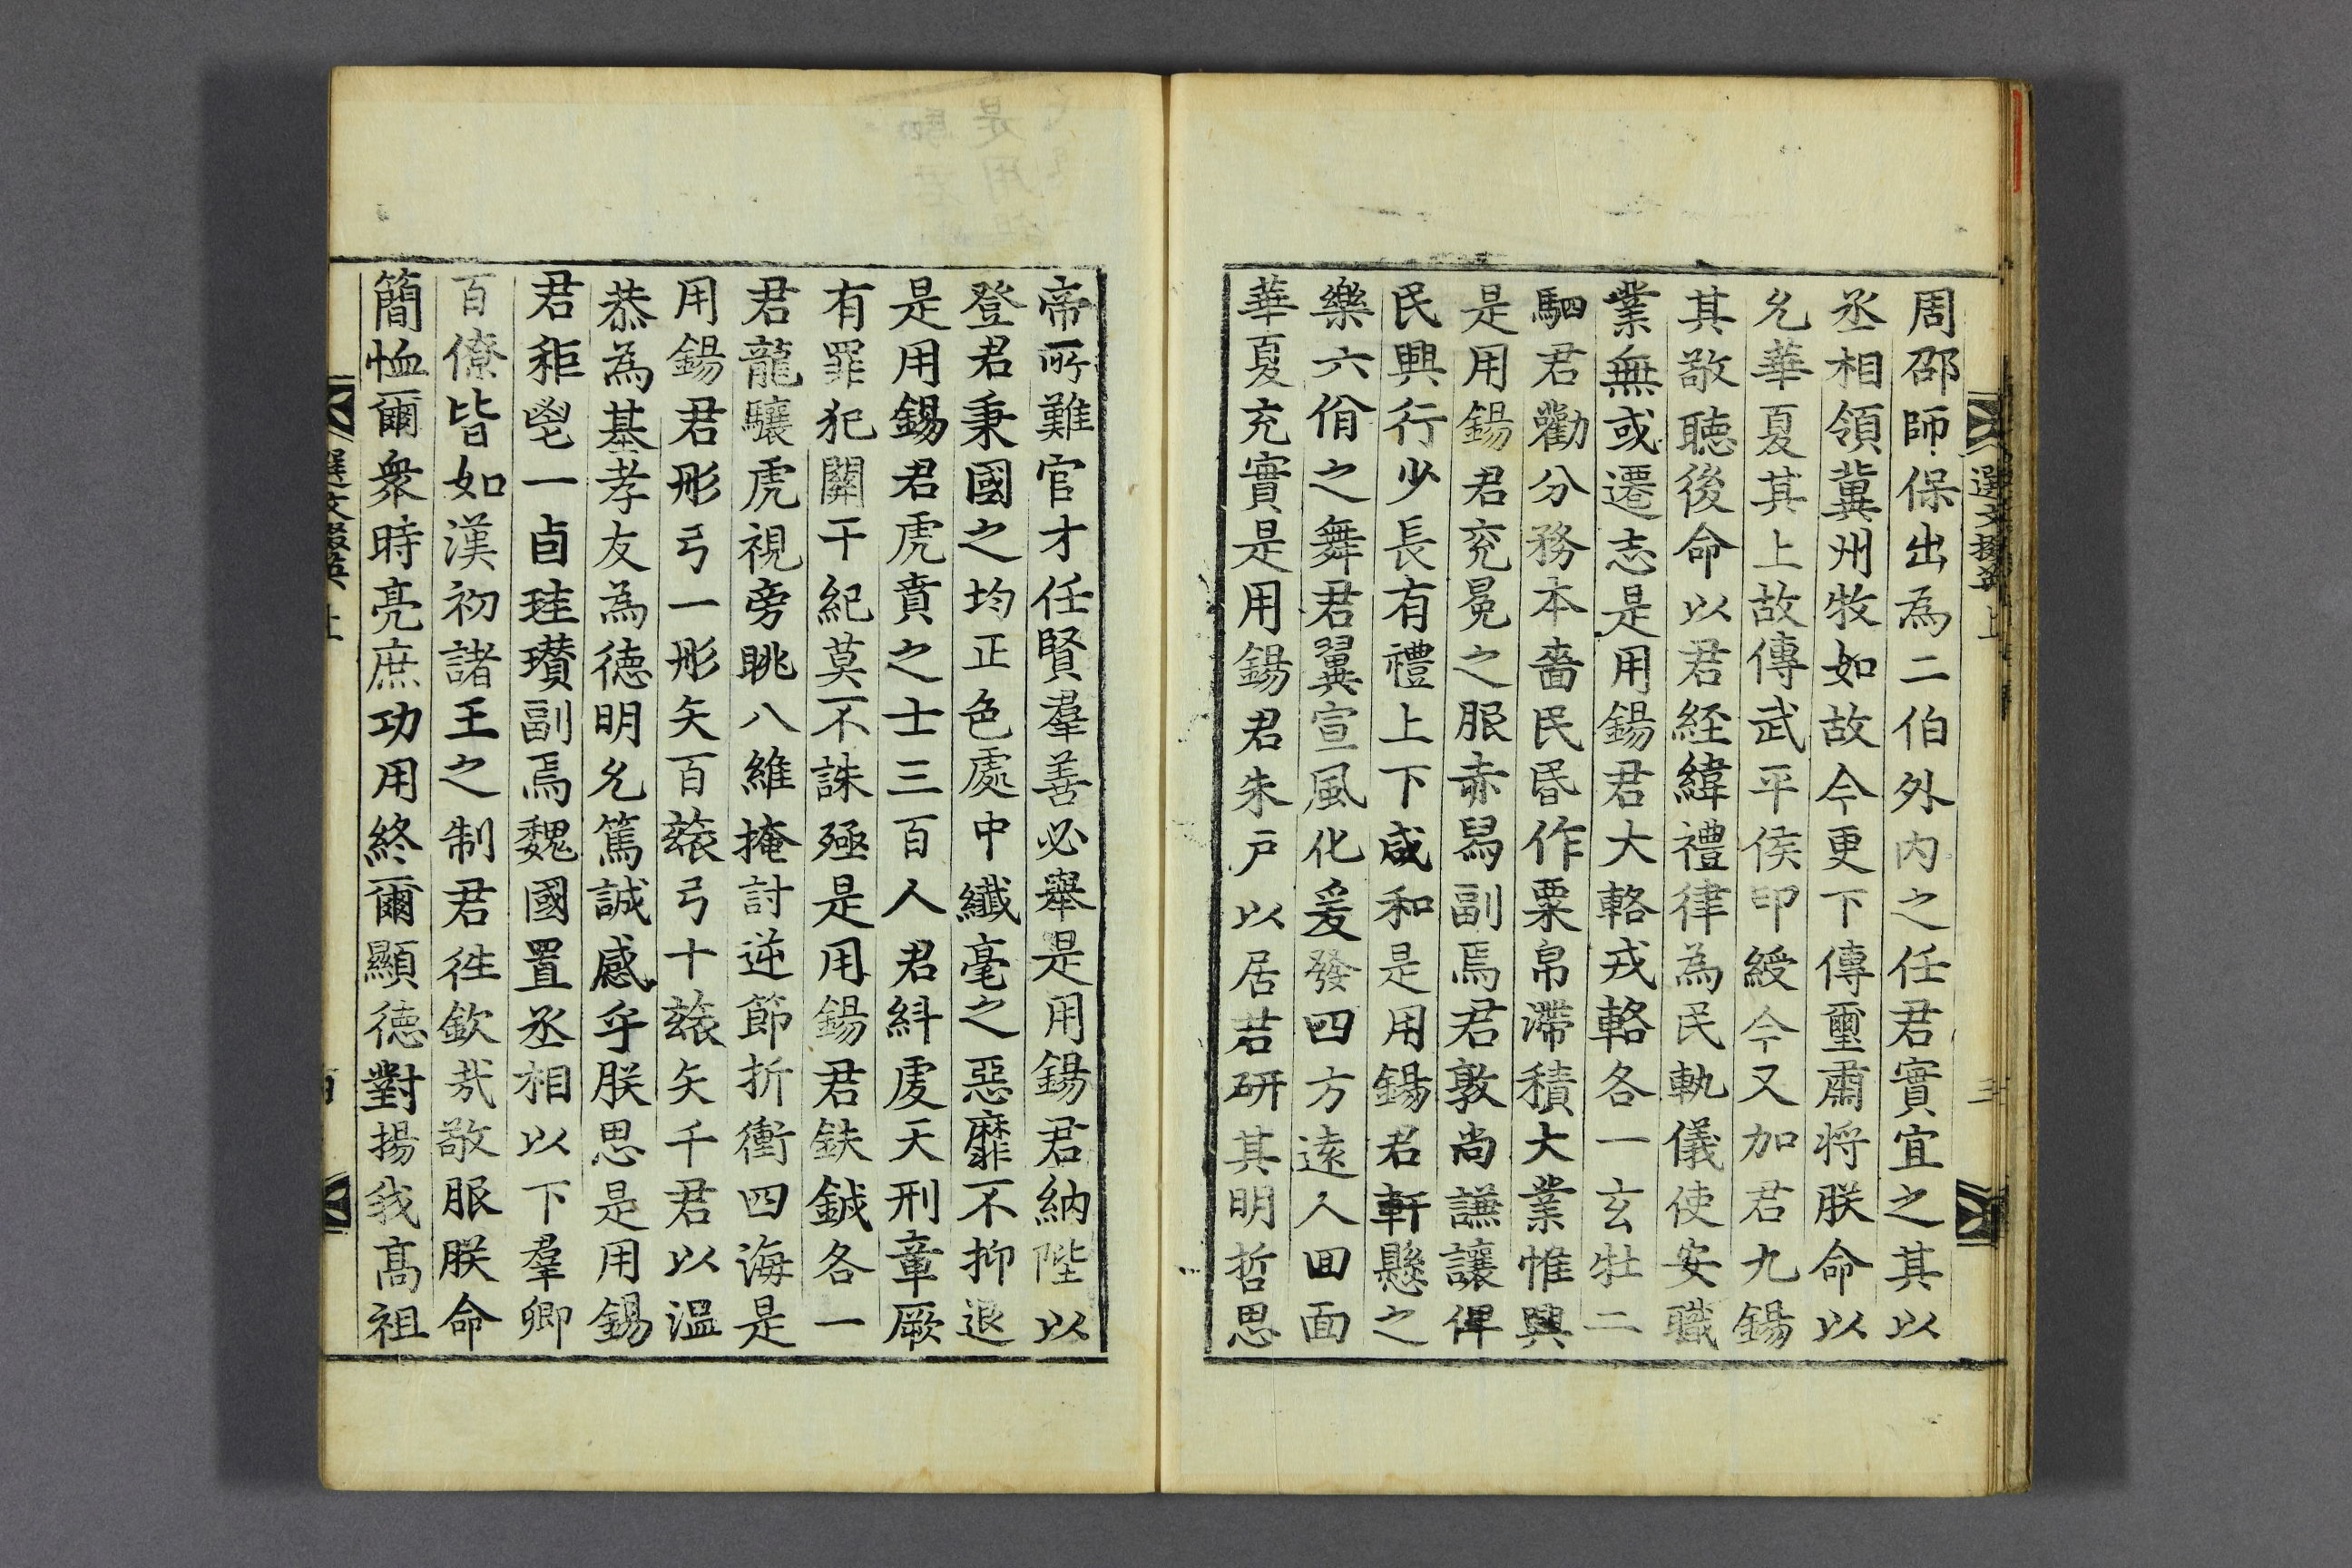 周邵師保出為二伯外內之任君實宜之其以
丞相領冀州牧如故今更下傳璽肅将朕命以
允華夏其上故傳武平侯印綬今又加君九錫
其敬聴後命以君経緯禮律為民軌儀使安職
業無或遷志是用錫君大輅戎輅各一玄牡二
駟君勸分務本嗇民昏作粟帛滯積大業惟興
是用錫君兖冕之服赤舄副焉君敦尚謙讓俾
民興行少長有禮上下咸和是用錫君軒懸之
樂六佾之舞君翼宣風化爰發四方遠人囬面
華夏充實是用錫君朱戶以居君研其明哲思
帝所難官才任賢羣善必舉是用錫君納陛以
登君秉國之均正色處中纎毫之惡靡不抑退
是用錫君虎賁之士三百人君糾虔天刑章厥
有罪犯關干紀莫不誅殛是用錫君鈇鉞各一
君龍驤虎視旁眺八維掩討逆節折衝四海是
用錫君彤弓一彤矢百玈弓十玈矢千君以溫
恭為基孝友為德明允篤誠感乎朕思是用錫
君秬鬯一卣珪瓚副焉魏國置丞相以下羣卿
百僚皆如漢初諸王之制君徃欽哉敬服朕命
簡恤爾衆時亮庶功用終爾顯德對揚我高祖
選文掇英 上
三